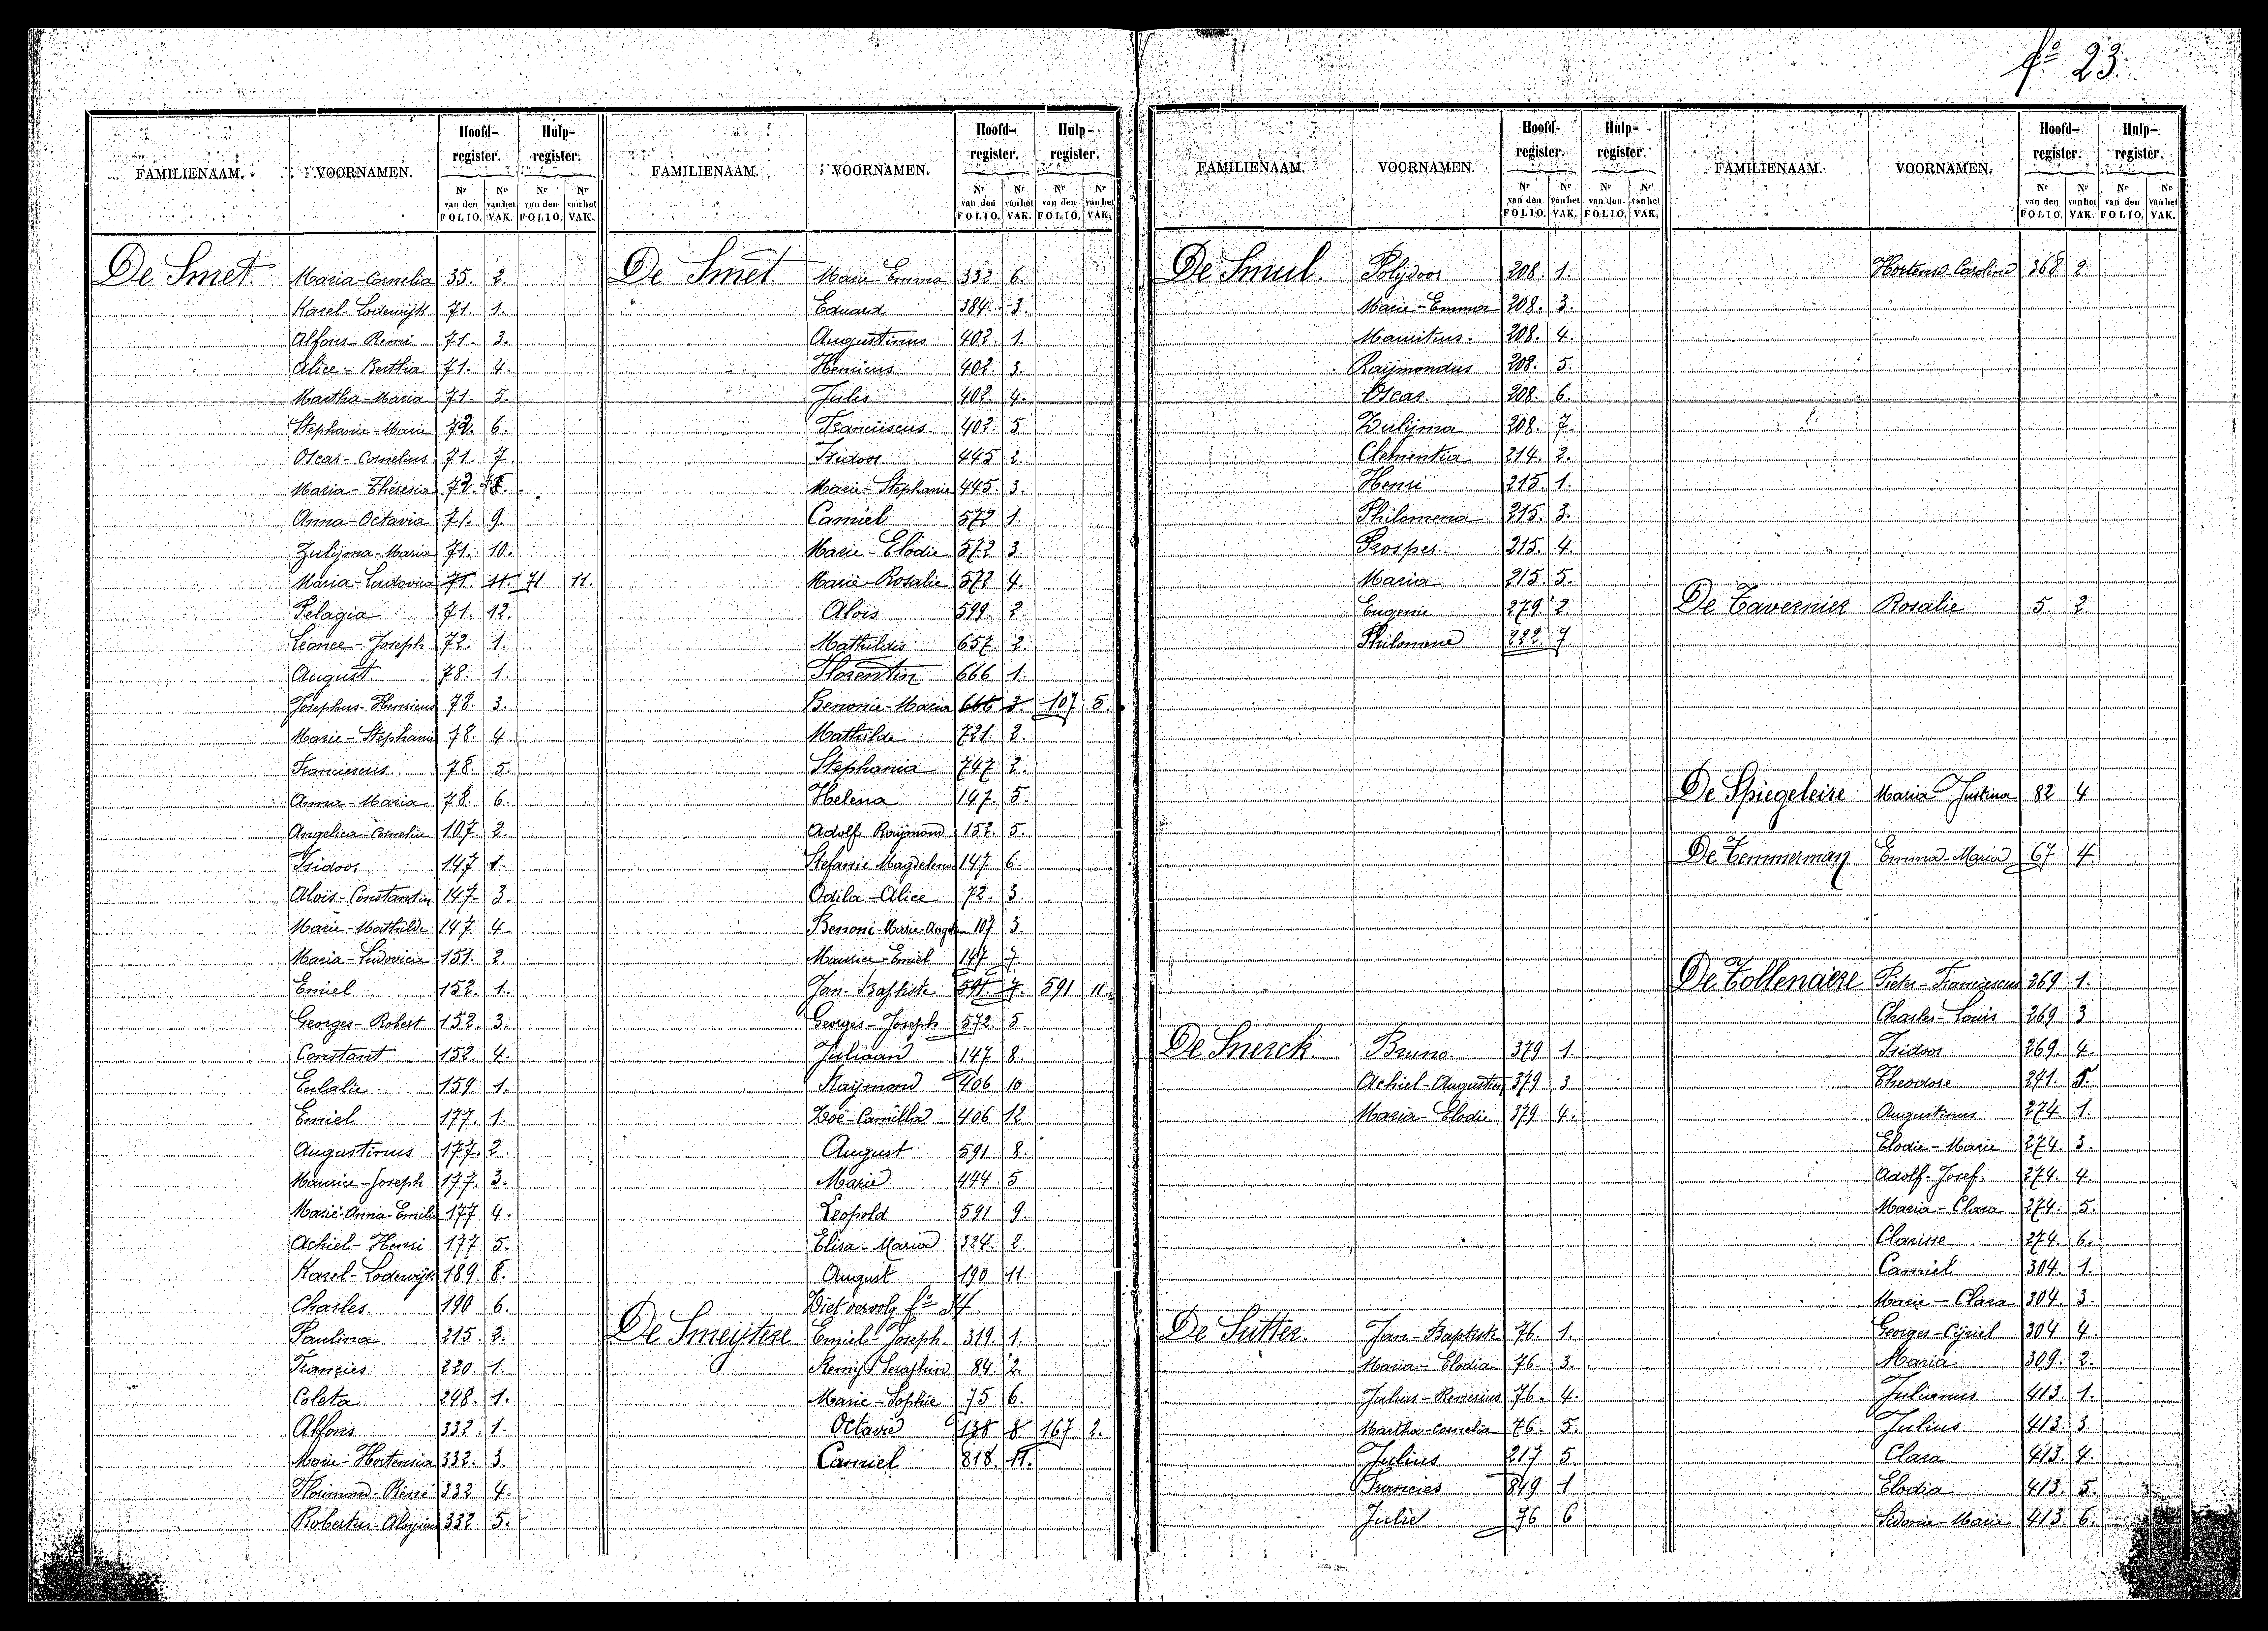 fo 23.
FAMILIENAAM. VOORNAMEN. Hoofd-register. Hulp-register.
Nr van den FOLIO. Nr van het VAK. Nr van den FOLIO. Nr van het VAK.
De Smet. Maria-Cornelia 35. 2.
Karel-Lodewijk 71. 1.
Alfons-Remi 71. 3.
Alice-Bertha 71. 4.
Martha-Maria 71. 5.
Stephanie-Marie 72. 6.
Oscar-Cornelius 71. 7.
Maria-Théresia 72.
Anna-Octavia 71. 9.
Zulijma-Maria 71. 10.
Maria-Ludovica 71. 11. 71 11.
Pelagia 71. 12.
Léonce-Joseph 72. 1.
August 78. 1.
Josephus-Henricus 78. 3.
Marie-Stephanie 78. 4.
Franciescus. 78. 5.
Anna-Maria 78. 6.
Angelica-Cornelia 107. 2.
Isidoor 147. 1.
Aloïs-Constantin 147. 3.
Marie-Mathilde 147. 4.
Maria-Ludovica 151. 2.
Emiel 152. 1.
Georges-Robert 152. 3.
Constant 152. 4.
Eulalie. 159. 1.
Emiel 177. 1.
Augustinus 177. 2.
Maurice-Joseph 177. 3.
Marie-Anna-Emilie 177 4.
Achiel-Henri 177 5.
Karel-Lodewijk 189. 8.
Charles 190 6.
Paulina 215. 2.
Francies 220. 1.
Coleta 248. 1.
Alfons 332. 1.
Marie-Hortensia 332. 3.
Florimond-René 332 4.
Robertus-Aloysius 332 5.
FAMILIENAAM. VOORNAMEN. Hoofd-register. Hulp-register.
Nr van den FOLIO. Nr van het VAK. Nr van den FOLIO. Nr van het VAK.
De Smet. Marie-Emma 332 6.
Eduard 384. 3.
Augustinus 402. 1.
Henricus 402. 3.
Jules 402. 4.
Franciiscus. 402. 5
Isidoor 445 2.
Marie-Stephanie 445. 3.
Camiel 572 1.
Marie-Elodie 572 3.
Marie-Rosalie 572 4.
Aloïs 599. 2.
Mathildis 657. 2.
Florentin 666 1.
Benonie-Maria 666 3 107 5.
Mathilde 721. 2.
Stephania 747 2.
Helena 147. 5.
Adolf Raijmond 152. 5.
Stefanie Magdelena 147. 6.
Odila-Alice 72. 3.
Benoni-Marie- 107 3.
Maurice-Emiel 147 7.
Jan-Baptiste 591 7. 591 11.
Georges-Joseph 572. 5.
Juliaan 147 8.
Raijmond 406 10
Zoë-Camilla 406 12
August 591 8.
Marie 444 5
Leopold 591 9.
Elisa-Maria 324. 2.
August 190 11.
Ziet vervolg fo
De Smeijtere Emiel-Joseph. 319. 1.
Remij Seraphin 84. 2.
Marie-Sophie 75 6.
Octavie 138 8 167 2.
Camiel 818. 11.
FAMILIENAAM. VOORNAMEN. Hoofd-register. Hulp-register.
Nr van den FOLIO. Nr van het VAK. Nr van den FOLIO. Nr van het VAK.
De Smul. Polijdoor 208. 1.
Marie-Emma 208. 3.
Mauritius. 208. 4.
Raijmondus 208. 5.
Oscar 208. 6.
Zulijma 208. 7.
Clementia 214. 2.
Henri 215. 1.
Philomena 215. 3.
Prosper. 215. 4.
Maria 215. 5.
Eugenie 279. 2.
Philomene 222. 7.
De Snerck. Bruno. 379 1.
Achiel-Augustien 379 3
Maria-Elodie 379 4.
De Sutter. Jan-Baptiste 76. 1.
Maria-Elodia 76. 3.
Julius-Renerius 76. 4.
Martha-Cornelia 76. 5.
Julius 217 5
Francies 849 1
Julie 76 6
FAMILIENAAM. VOORNAMEN. Hoofd-register. Hulp-register.
Nr van den FOLIO. Nr van het VAK. Nr van den FOLIO. Nr van het VAK.
Hortense-Caroline 368 2.
De Tavernier Rosalie 5. 2.
De Spiegeleire Maria Justina 82 4
De Temmerman Emma-Maria 67 4
De Tollenaere Pieter-Franciescus 269 1.
Charles-Louis 269 3
Isidoor 269. 4.
Theodore 271.
Augustinus 274. 1.
Elodie-Marie 274. 3.
Adolf-Josef. 274. 4.
Maria-Clara 274. 5.
Clarisse 274. 6.
Camiel 304. 1.
Marie-Clara 304. 3.
Georges-Cijriel 304 4.
Maria 309. 2.
Julianus 413. 1.
Julius 413. 3.
Clara 413. 4.
Elodia 413. 5.
Sidonie-Marie 413. 6.